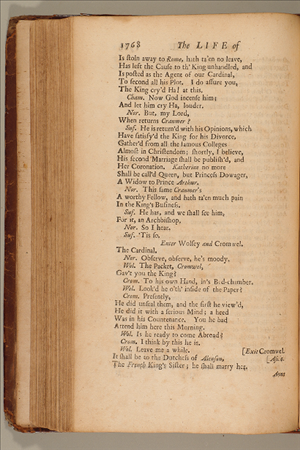 1768 The LIFE of
Is stoln away to Rome, hath ta'en no leave,
Has left the Cause to th' King unhandled, and
Is posted as the Agent of our Cardinal,
To second all his Plot. I do assure you,
The King cry'd Ha! at this.
Cham. Now God incense him;
And let him cry Ha, louder.
Nor. But, my Lord,
When returns Cranmer?
Suf. He is return'd with his Opinions, which
Have satisfy'd the King for his Divorce,
Gather'd from all the famous Colleges
Almost in Christendom; shortly, I believe,
His second Marriage shall be publish'd, and
Her Coronation. Katherine no more
Shall be call'd Queen, but Princess Dowager,
A Widow to Prince Arthur.
Nor. This same Cranmer's
A worthy Fellow, and hath ta'en much pain
In the King's Business.
Suf. He has, and we shall see him,
For it, an Archbishop.
Nor. So I hear.
Suf. 'Tis so.
Enter Wolsey and Cromwel.
The Cardinal.
Nor. Observe, observe, he's moody.
Wol. The Packet, Cromwel,
Gav't you the King?
Crom. To his own Hand, in's Bed-chamber.
Wol. Look'd he o'th' inside of the Paper?
Crom. Presently,
He did unseal them, and the first he view'd,
He did it with a serious Mind; a heed
Was in his Countenance. You he had
Attend him here this Morning.
Wol. Is he ready to come Abroad?
Crom. I think by this he is.
Wol. Leave me a while. [Exit Cromwel.
It shall be to the Dutchess of Alenson, [Aside.
The French King's Sister; he shall marry her.